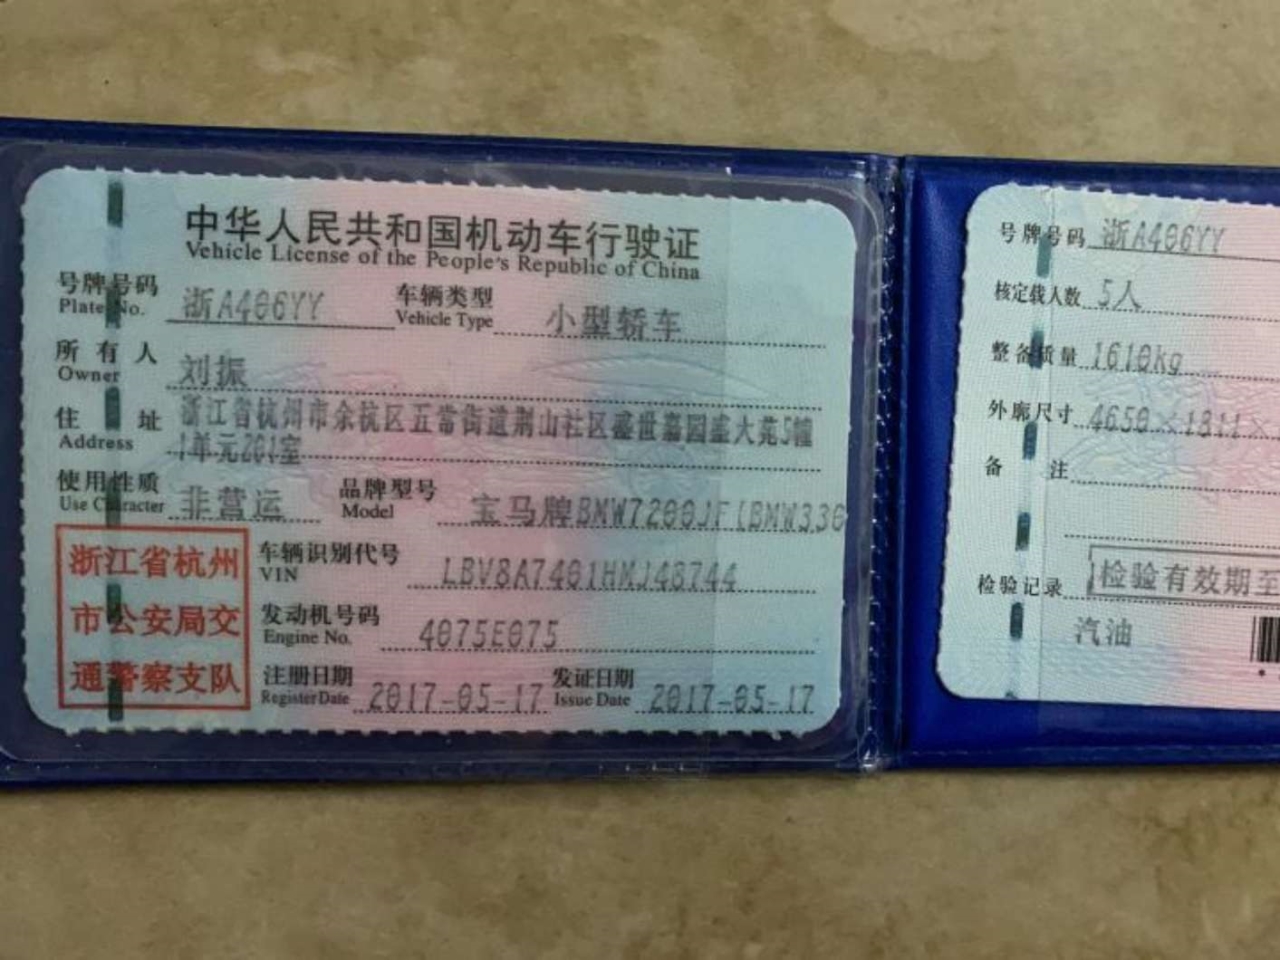 中华人民共和国机动车行驶证
Vehicle License of the People's Republic of China
号牌号码 浙A406YY 车辆类型 小型轿车
Plate No. Vehicle Type
所有人 刘振
Owner
住址 浙江省杭州市余杭区五常街道荆山社区盛世嘉园盛大苑5幢
Address 1单元201室
使用性质 非营运 品牌型号 宝马牌BMW7200JF(BMW330
Use Character Model
浙江省杭州
市公安局交
通警察支队
车辆识别代号 LBV8A7401HMJ48744
VIN
发动机号码 4075E075
Engine No.
注册日期 2017-05-17 发证日期 2017-05-17
Register Date Issue Date
号牌号码 浙A406YY
核定载人数 5人
整备质量 1610kg
外廓尺寸 4650×1811×
备注
检验记录 检验有效期至
汽油